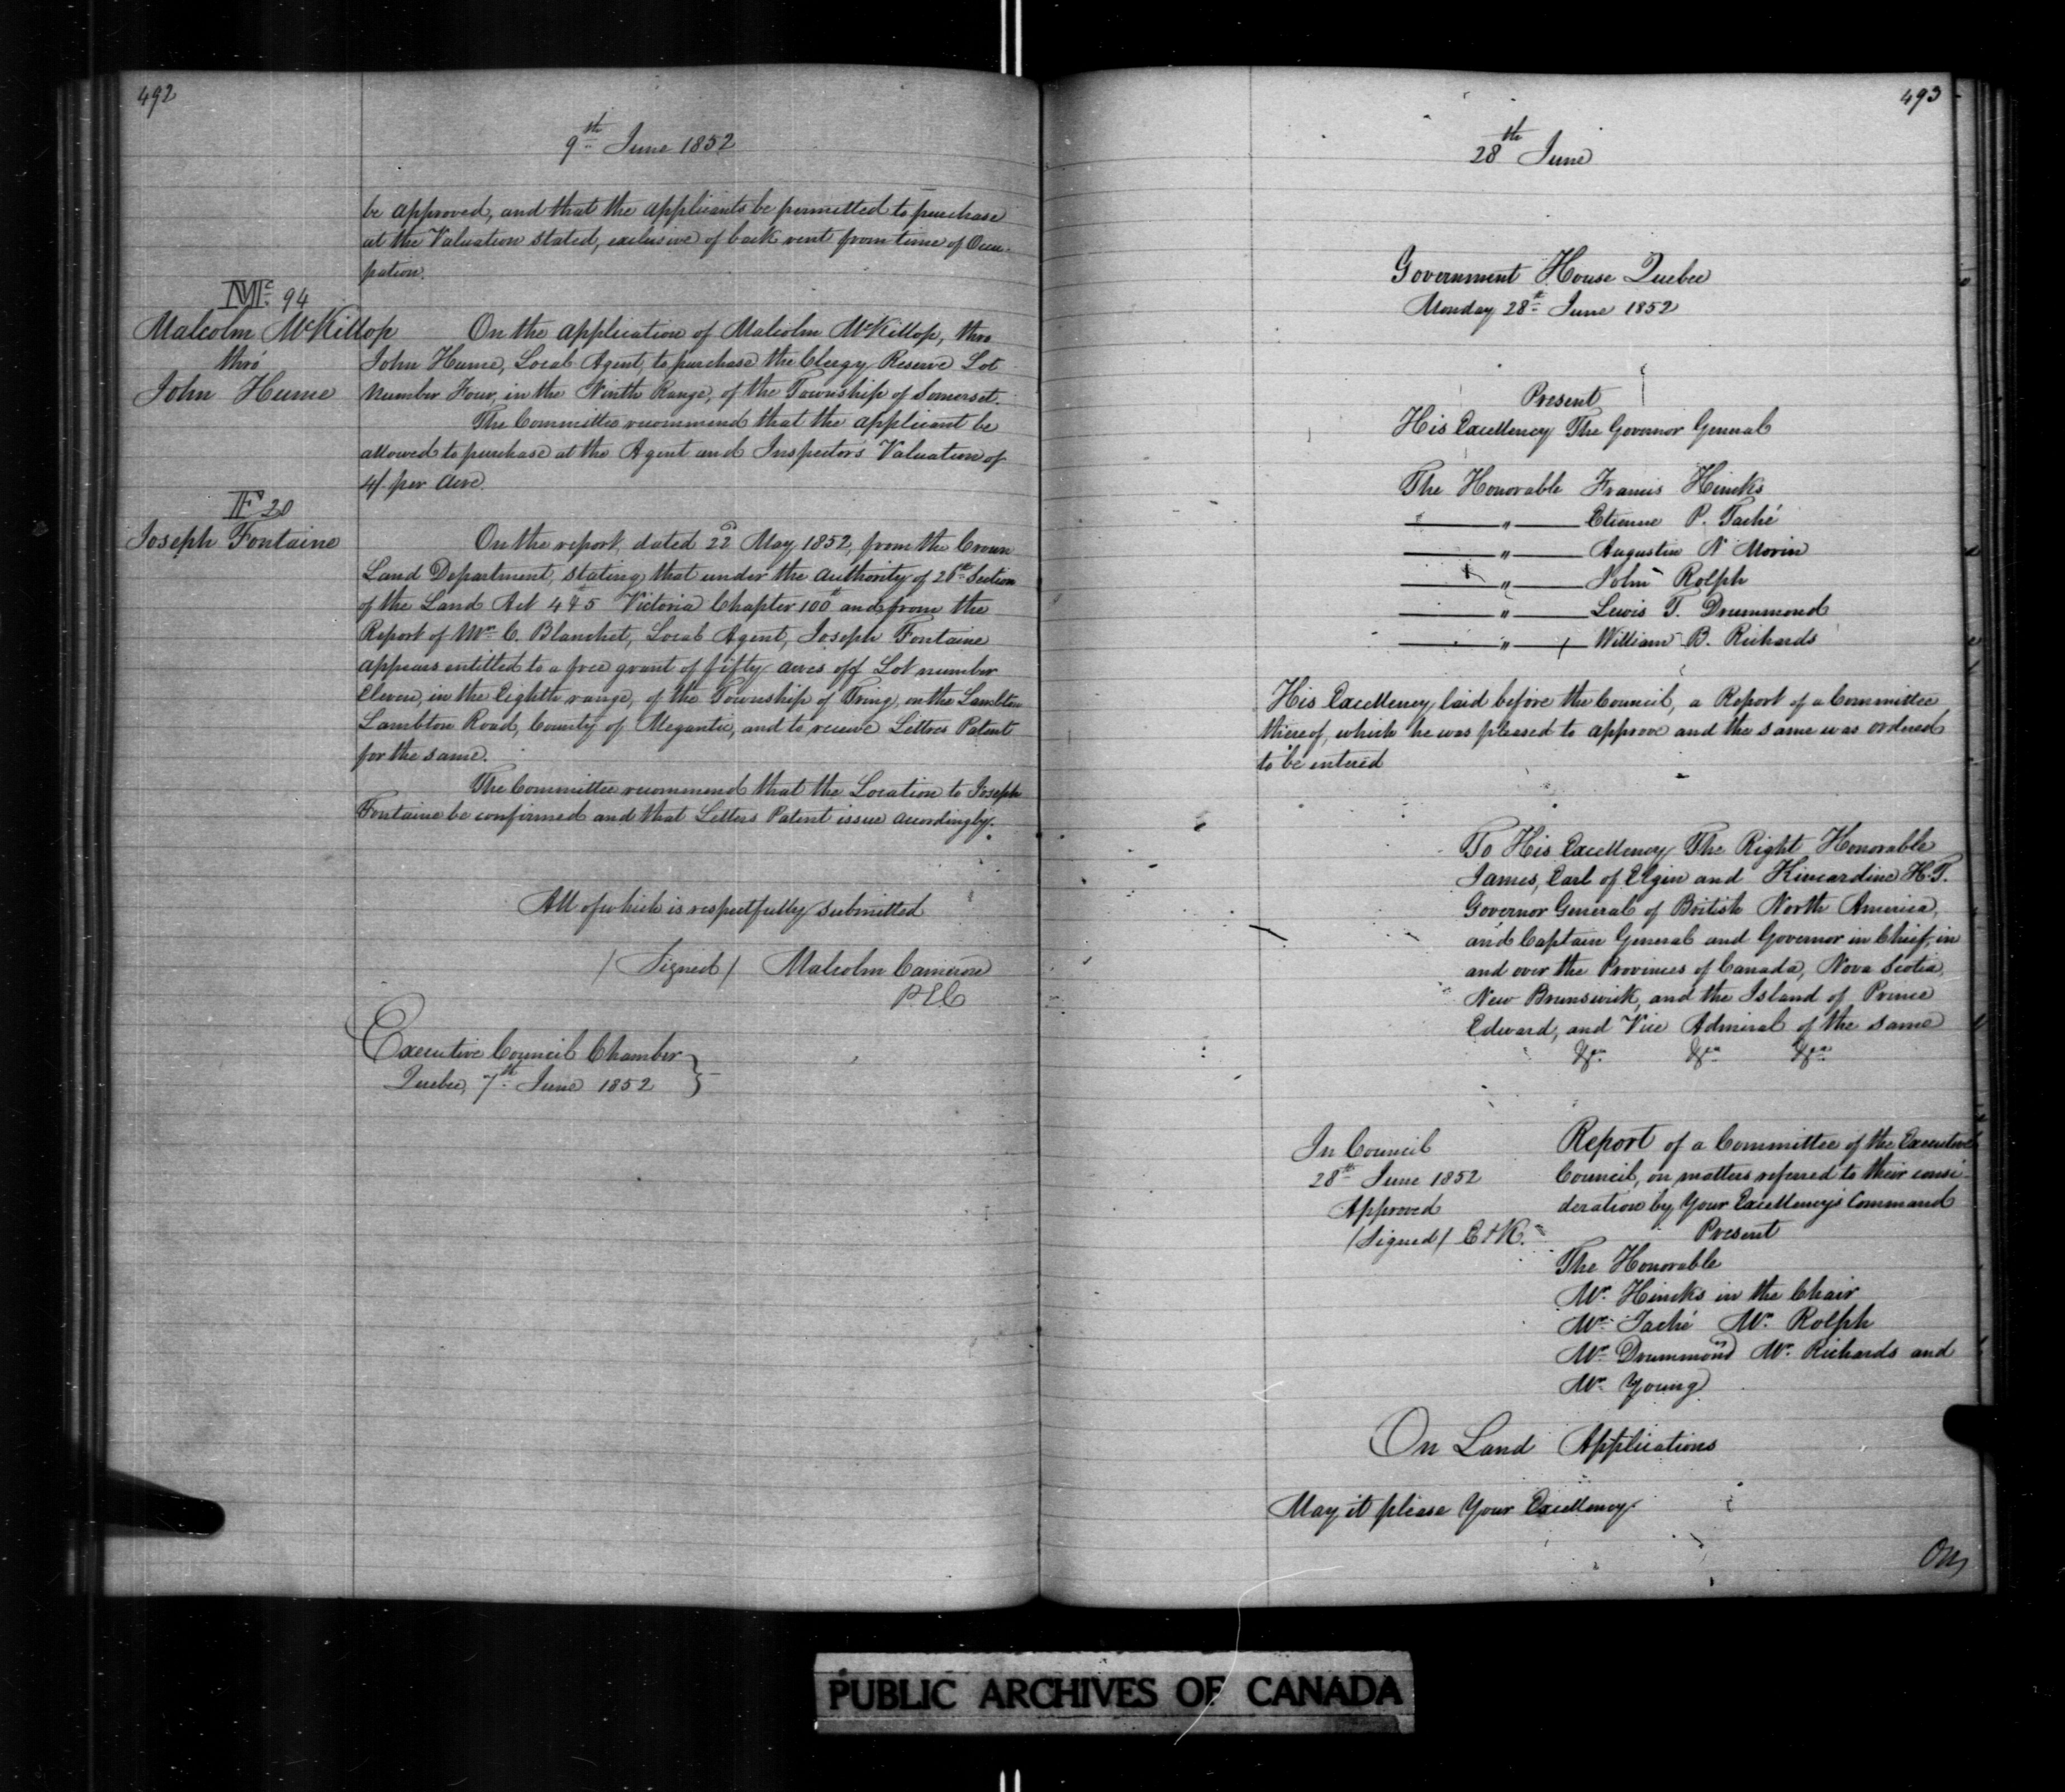 492
9th June 1852
be approved, and that the applicants be permitted to purchase
at the Valuation stated, exclusive of back rent from time of Occu-
pation.
Mc. 94
Malcolm McKillop
thro'
John Hume
On the application of Malcolm McKillop, thro
John Hume, Local Agent, to purchase the Clergy Reserve Lot
number Four, in the Ninth Range, of the Township of Somerset.
The Committee recommend that the applicant be
allowed to purchase at the Agent and Inspector's Valuation of
4/. per acre.
F 20
Joseph Fontaine
On the report, dated 22d May 1852, from the Crown
Land Department, stating that under the authority of 26th Section
of the Land Act 4 & 5 Victoria Chapter 100th and from the
Report of Mr. C. Blanchet, Local Agent, Joseph Fontaine
appears entitled to a free grant of fifty acres off Lot number
Eleven, in the Eighth range, of the Township of Tring, on the Lambton
Lambton Road, County of Megantic, and to receive Letters Patent
for the same.
The Committee recommend that the Location to Joseph
Fontaine be confirmed and that Letters Patent issue accordingly.
All of which is respectfully submitted
/Signed/ Malcolm Cameron
P E C
Executive Council Chamber
Quebec, 7th June 1852
493
28th June
Government House Quebec
Monday 28th June 1852
Present
His Excellency The Governor General
The Honorable Francis Hincks
" Etienne P. Taché
" Augustin N Morin
" John Rolph
" Lewis T. Drummond
" William B. Richards
His Excellency laid before the Council, a Report of a Committee
thereof, which he was pleased to approve and the same was ordered
to be entered
To His Excellency The Right Honorable
James, Earl of Elgin and Kincardine K.T.
Governor General of British North America,
and Captain General and Governor in Chief, in
and over the Provinces of Canada, Nova Scotia,
New Brunswick, and the Island of Prince
Edward, and Vice Admiral of the same
&ca &ca &ca
In Council
28th June 1852
Approved
/Signed/ E & K.
Report of a Committee of the Executive
Council, on matters referred to their consi-
deration by Your Excellency's Command
Present
The Honorable
Mr. Hincks in the Chair
Mr. Taché Mr. Rolph
Mr. Drummond Mr. Richards and
Mr. Young
On Land Applications
May it please Your Excellency
On
PUBLIC ARCHIVES OF CANADA